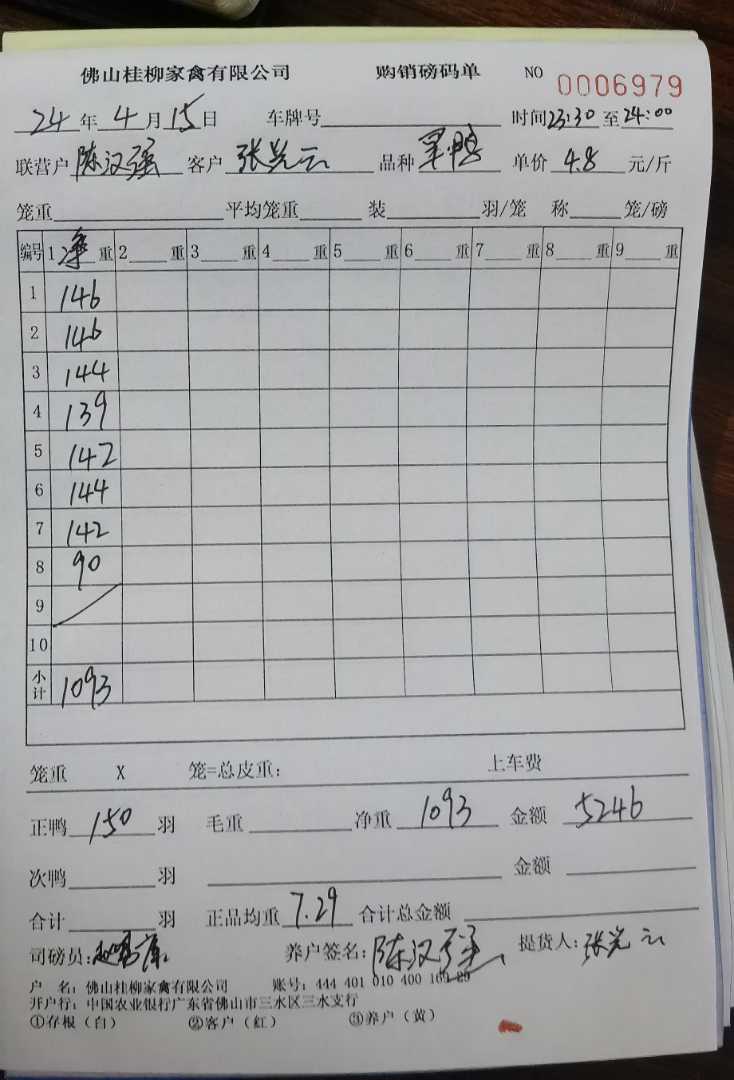 佛山桂柳家禽有限公司 购销磅码单 NO 0006979
24年4月15日 车牌号 时间23:30至24:00
联营户 陈汉强 客户 张光云 品种 单价 4.8 元/斤
笼重 平均笼重 装 羽/笼 称 笼/磅
编号 1 净 重 2 重 3 重 4 重 5 重 6 重 7 重 8 重 9 重
1 146
2 146
3 144
4 139
5 142
6 144
7 142
8 90
9
10
小计 1093
笼重 X 笼=总皮重: 上车费
正鸭 150 羽 毛重 净重 1093 金额 5246
次鸭 羽 金额
合计 羽 正品均重 7.29 合计总金额
司磅员: 养户签名: 陈汉强 提货人: 张光云
户 名: 佛山桂柳家禽有限公司 账号: 444 401 010 400 89
开户行: 中国农业银行广东省佛山市三水区三水支行
①存根（白） ②客户（红） ③养户（黄）